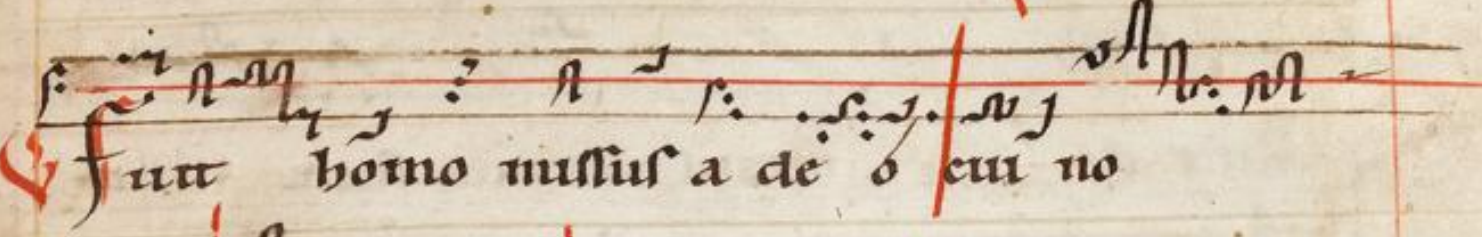 Fuit homo missus a deo cui no